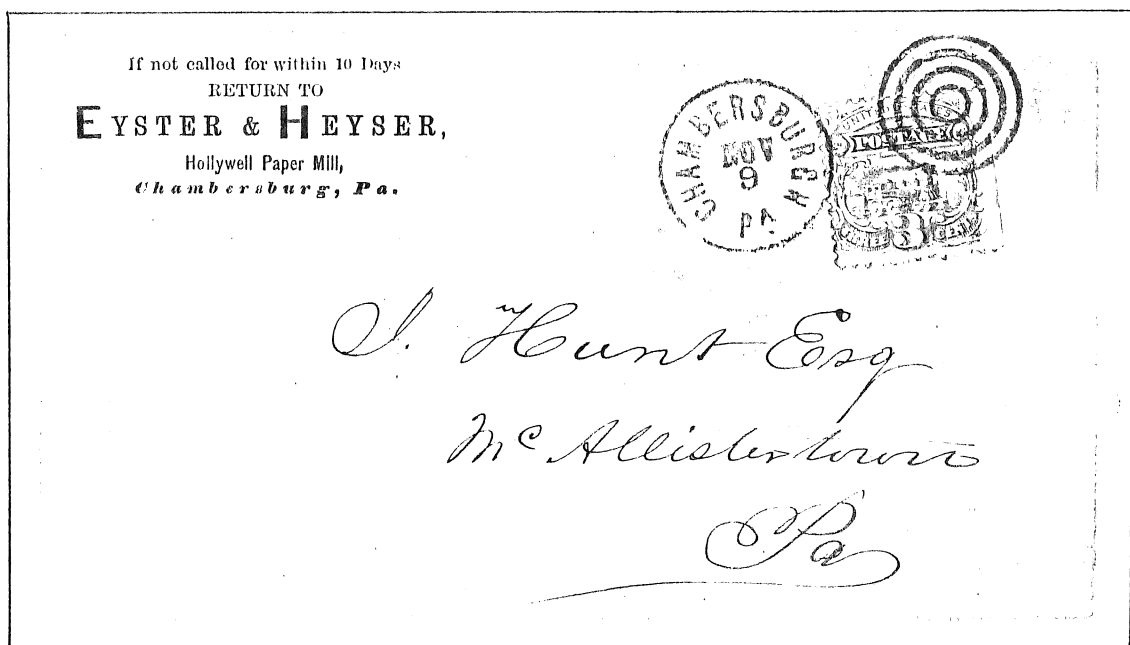 If not called for within 10 Days
RETURN TO
EYSTER & HEYSER,
Hollywell Paper Mill,
Chambersburg, Pa.
CHAMBERSBURGH
NOV
9
PA
POSTAGE
3
CENTS
Hunt Esq
Mc Allistertown
Pa